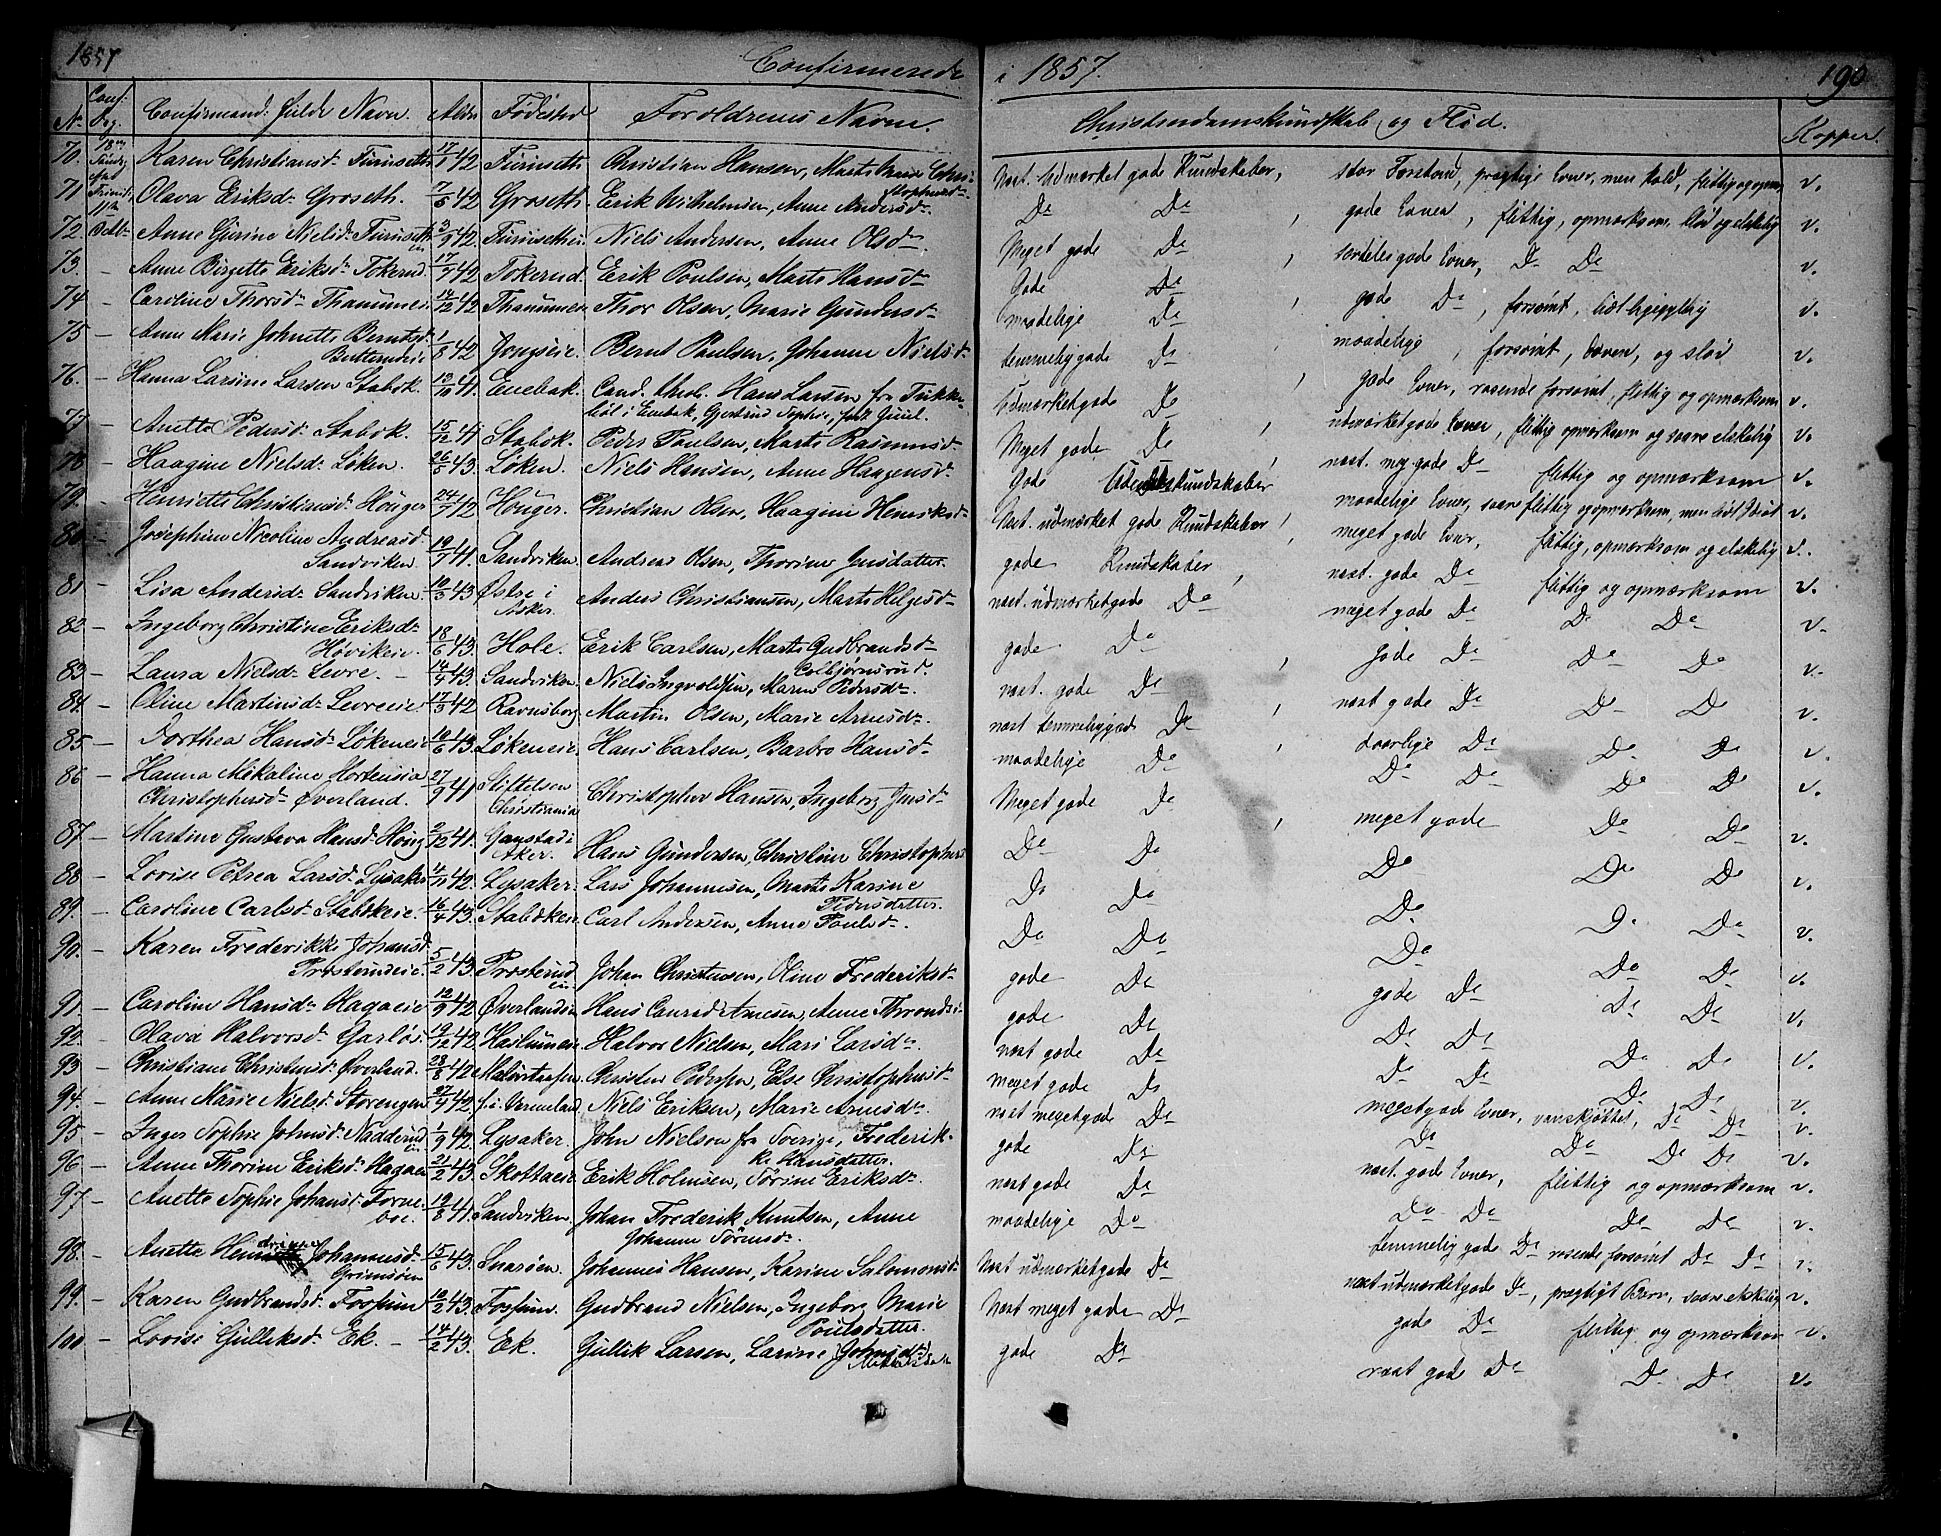 1857 Confirmerede i 1857. 190
No Conf. Dag. Confirmand. fulde Navn. Alder Fødested Forældrenes Navne. Christendomskundskab og Flid. Kopper.
70. 18de Karen Christiansd. Furuseth 17/1 42 Furuseth Christian Hansen, Marthe Marie Christophersd.
Næst. Udmærket gode Kundskaber, stor Forstand, prægtige Evner, men kold, flittig og opm. v.
71 Olava Eriksd. Groseth. 7/6 42 Groseth. Erik Wilhelmsen, Anne Andersd.
Do Do, gode Evner, flittig, opmærksom, blid og elskelig v.
72. Anne Gurine Nielsd. Furuseth 3/9 42. Furuseth Niels Andersen, Anne Olsd.
Meget gode Do, særdeles gode Evner, Do Do v.
73. – Anne Birgitte Eriksd. Tokerud. 17/9 42 Tokerud. Erik Poulsen, Marte Hansd.
Gode Do, gode Do, forsømt, lidt ligegyldig v.
74 – Caroline Thorsd. Thanumeie 14/12 42 Thanumeie Thor Olsen, Marie Gundersd.
maadelige Do maadelige, forsømt, doven, og sløv v.
75 – Anne Marie Johnette Berntsd. 1/8 42 Jongseie. Bernt Poulsen, Johanne Nielsd.
temmelig gode Do, gode Evner, rasende forsømt, flittig og opmærksom v.
76. – Hanna Larsine Larsen Stabæk. 13/10 41. Enebak. Cand. theol. Hans Larsen fra
i Enebak, Gjertrud Sophie,
Udmærket gode Do, udmærket gode Evner, flittig opmærksom og saare elskelig v.
77 – Anette Pedersd. Stabæk. 15/12 41 Stabæk. Peder Poulsen, Marte Rasmusd.
Meget gode Do, næst. meg. gode Do flittig og opmærksom v.
78 – Haagine Nielsd. Løken. 26/5 43. Løken. Niels Hansen, Anne Haagensd.
Gode Udenadskundskaber, maadelige Evner, saare flittig og opmærksom, men lidt Idiot v.
79. – Henriette Christiansd. Houger 24/7 42 Houger. Christian Olsen, Haagine Henriksd.
Næst. udmærket gode Kundskaber, meget gode Evner, flittig, opmærksom og elskelig v.
80 – Josephine Nicoline Andreasd. Sandviken. 19/9 41. Sandviken. Andreas Olsen, Thorine Jensdatter.
gode Kundskaber, næst. gode Do flittig og opmærksom v.
81 – Lisa Andersd. Sandviken. 10/3 43 Østre i Asker. Anders Christiansen, Marte Helgesd.
næst. udmærket gode Do meget gode Do Do Do v.
82 – Ingeborg Christine Eriksd. Høvikeie. 18/6 43. Hole. Erik Carlsen, Marte Gudbrandsd. Colbjørnsrud.
gode Do, gode Do Do Do v.
83 – Laura Nielsd. Levre. – 14/4 43. Sandviken. Niels Ingvoldsen, Maren Pedersd.
næst. gode Do, næst gode Do Do Do v.
84. – Oline Martinsd. Levreeie 17/5 42 Ravnsborg Martin Olsen, Marie Arnesd.
næst temmelig gode Do, daarlige Do Do Do v.
85 – Dorthea Hansd. Løkeneie 10/6 43. Løkeneie. Hans Carlsen, Barbro Hansd.
maadelige Do Do Do Do Do v.
86 – Hanna Mikaline Hortensia Christophersd. Øverland. 27/9 41 Stiftelsen Christiania Christopher Hansen, Ingeborg Jensd.
Meget gode Do, meget gode Do Do v.
87 – Martine Gustava Hansd. Høvig 2/12 41. Gaustad i Aker. Hans Gundersen, Christine Christophersd.
Do Do Do Do Do v.
88 – Lovise Petrea Larsd. Lysaker 4/11 42. Lysaker. Lars Johannesen, Marte Karine Pedersdatter.
Do Do Do Do Do v.
89. – Caroline Carlsd. Stabækeie. 16/4 43. Stabækeie Carl Andersen, Anne Poulsd.
Do Do Do Do Do v.
90. – Karen Frederikke Johansd. Presterudeie. 5/2 43. Presterud eie Johan Christensen, Oline Frederiksd.
gode Do gode Do Do Do v.
91. – Caroline Hansd. Hagaeie 12/9 42 Øverlandseie Hans Conrad Arnesen, Anne Throndsd.
gode Do Do Do Do Do v.
92. – Olava Halvorsd. Garløs. 19/12 42 Haslumeie. Halvor Nielsen, Mari Larsd.
næst gode Do Do Do Do Do v.
93. – Christiane Christensd. Øverland. 23/8 42 Christen Pedersen, Else Christophersd.
meget gode Do meget gode Evner, vanskjøttet, Do Do v.
94. – Anne Marie Nielsd. Storengen 27/9 42 f. i. Vermeland Niels Eriksen, Marie Arnesd.
næst meget gode Do Do Do Do Do v.
95 – Inger Sophie Johnsd. Nadderud eie 1/9 42 Lysaker. John Nielsen fra Sverige, Frederikke Hansdatter.
gode Do næst. gode Evner, flittig og opmærksom v.
96 – Anne Thorine Eriksd. Hagaeie 21/2 43. Skottaeie Erik Holmsen, Sørine Eriksd.
næst gode Do Do Do Do Do v.
97. – Anette Sophie Johansd. Forneboe. 19/8 41. Sandviken. Johan Frederik Knutsen, Anne Johanne Sørensd.
maadelige Do temmelig gode Do rasende forsømt Do Do v.
98. – Anette Hendrine Johannesd. Grimsøen 15/6 43. Snarøen. Johannes Hansen, Karine Salomonsd.
Næst udmærket gode Do næst udmærket gode Do, prægtigt Barn, saare elskelig v.
99. – Karen Gudbrandsd. Fossum 10/2 43. Fossum. Gudbrand Nielsen, Ingeborg Marie Poulsdatter.
Næst meget gode Do gode Do flittig og opmærksom v.
100 – Lovise Gulliksd. Ek. – 14/2 43. Ek. Gullik Larsen, Larine (Johnsd.)
gode Do næst gode Do Do Do v.